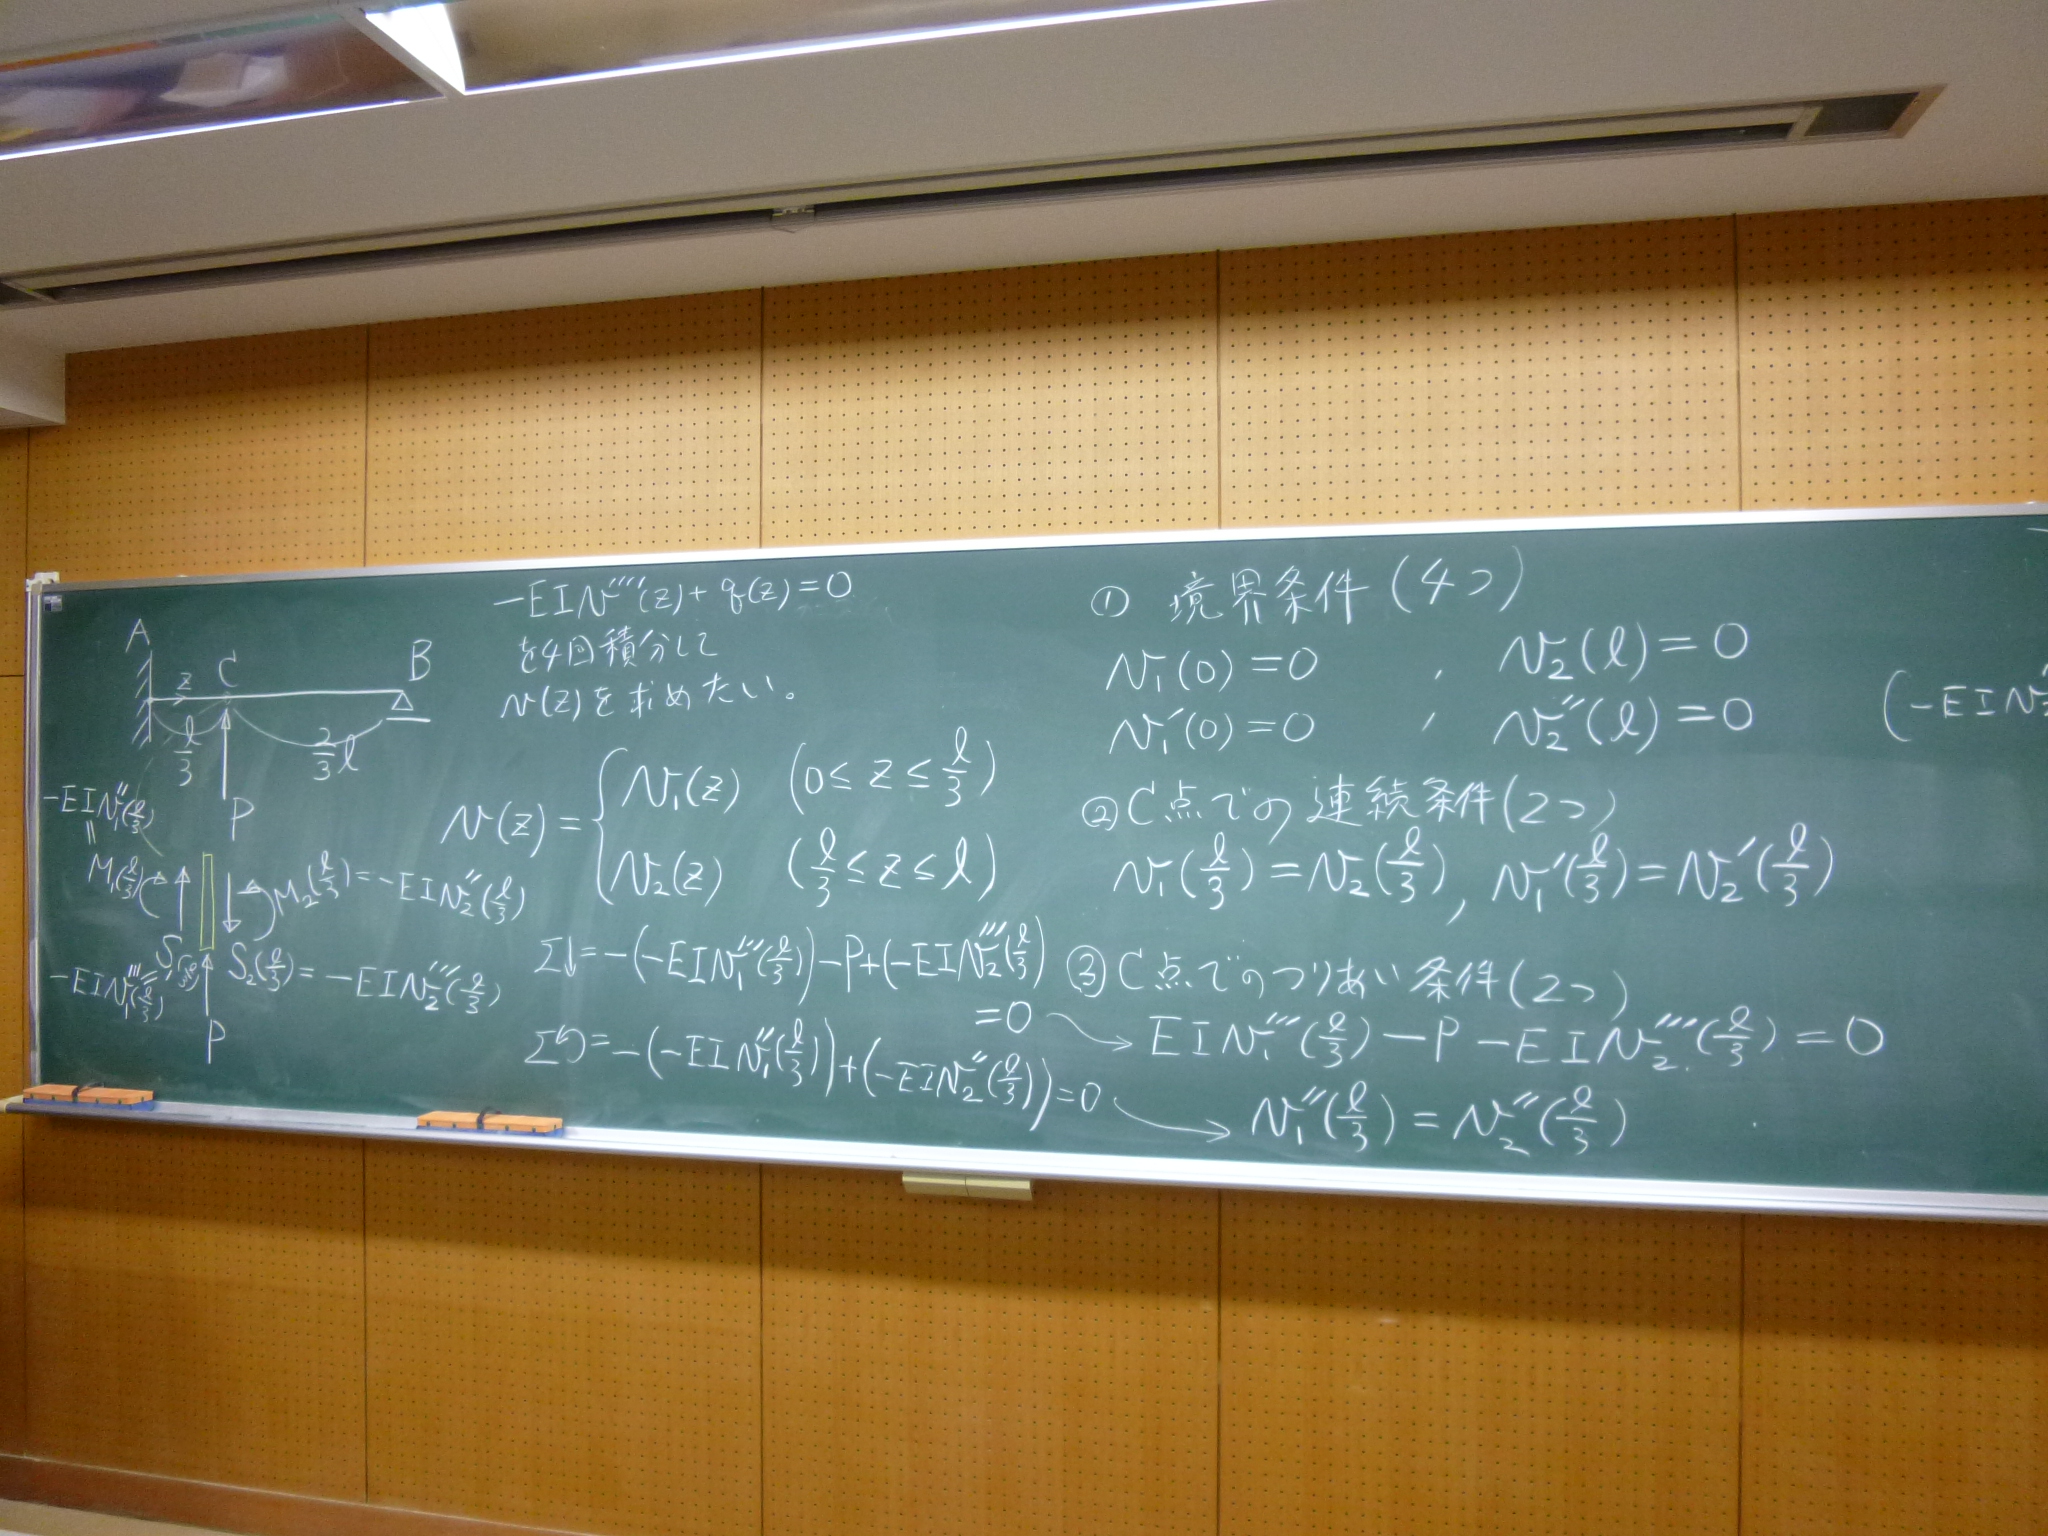 A
z
C
B
l/3
2/3 l
P
-EIv₁''(l/3)
=
M₁(l/3)
M₂(l/3) = -EIv₂''(l/3)
S₂(l/3) = -EIv₂'''(l/3)
-EIv₁'''(l/3)
P
-EIv''''(z) + q(z) = 0
を4回積分して
v(z)を求めたい。
v(z) = { v₁(z) (0 ≤ z ≤ l/3)
v₂(z) (l/3 ≤ z ≤ l)
Σ↓ = -(-EIv₁'''(l/3)) - P + (-EIv₂'''(l/3)
= 0
Σ↺ = -(-EIv₁''(l/3)) + (-EIv₂''(l/3)) = 0
① 境界条件(4つ)
v₁(0) = 0 , v₂(l) = 0
v₁'(0) = 0 , v₂''(l) = 0
(-EIv₂
② C点での連続条件(2つ)
v₁(l/3) = v₂(l/3), v₁'(l/3) = v₂'(l/3)
③ C点でのつりあい条件(2つ)
→ EIv₁'''(l/3) - P - EIv₂'''(l/3) = 0
→ v₁''(l/3) = v₂''(l/3)